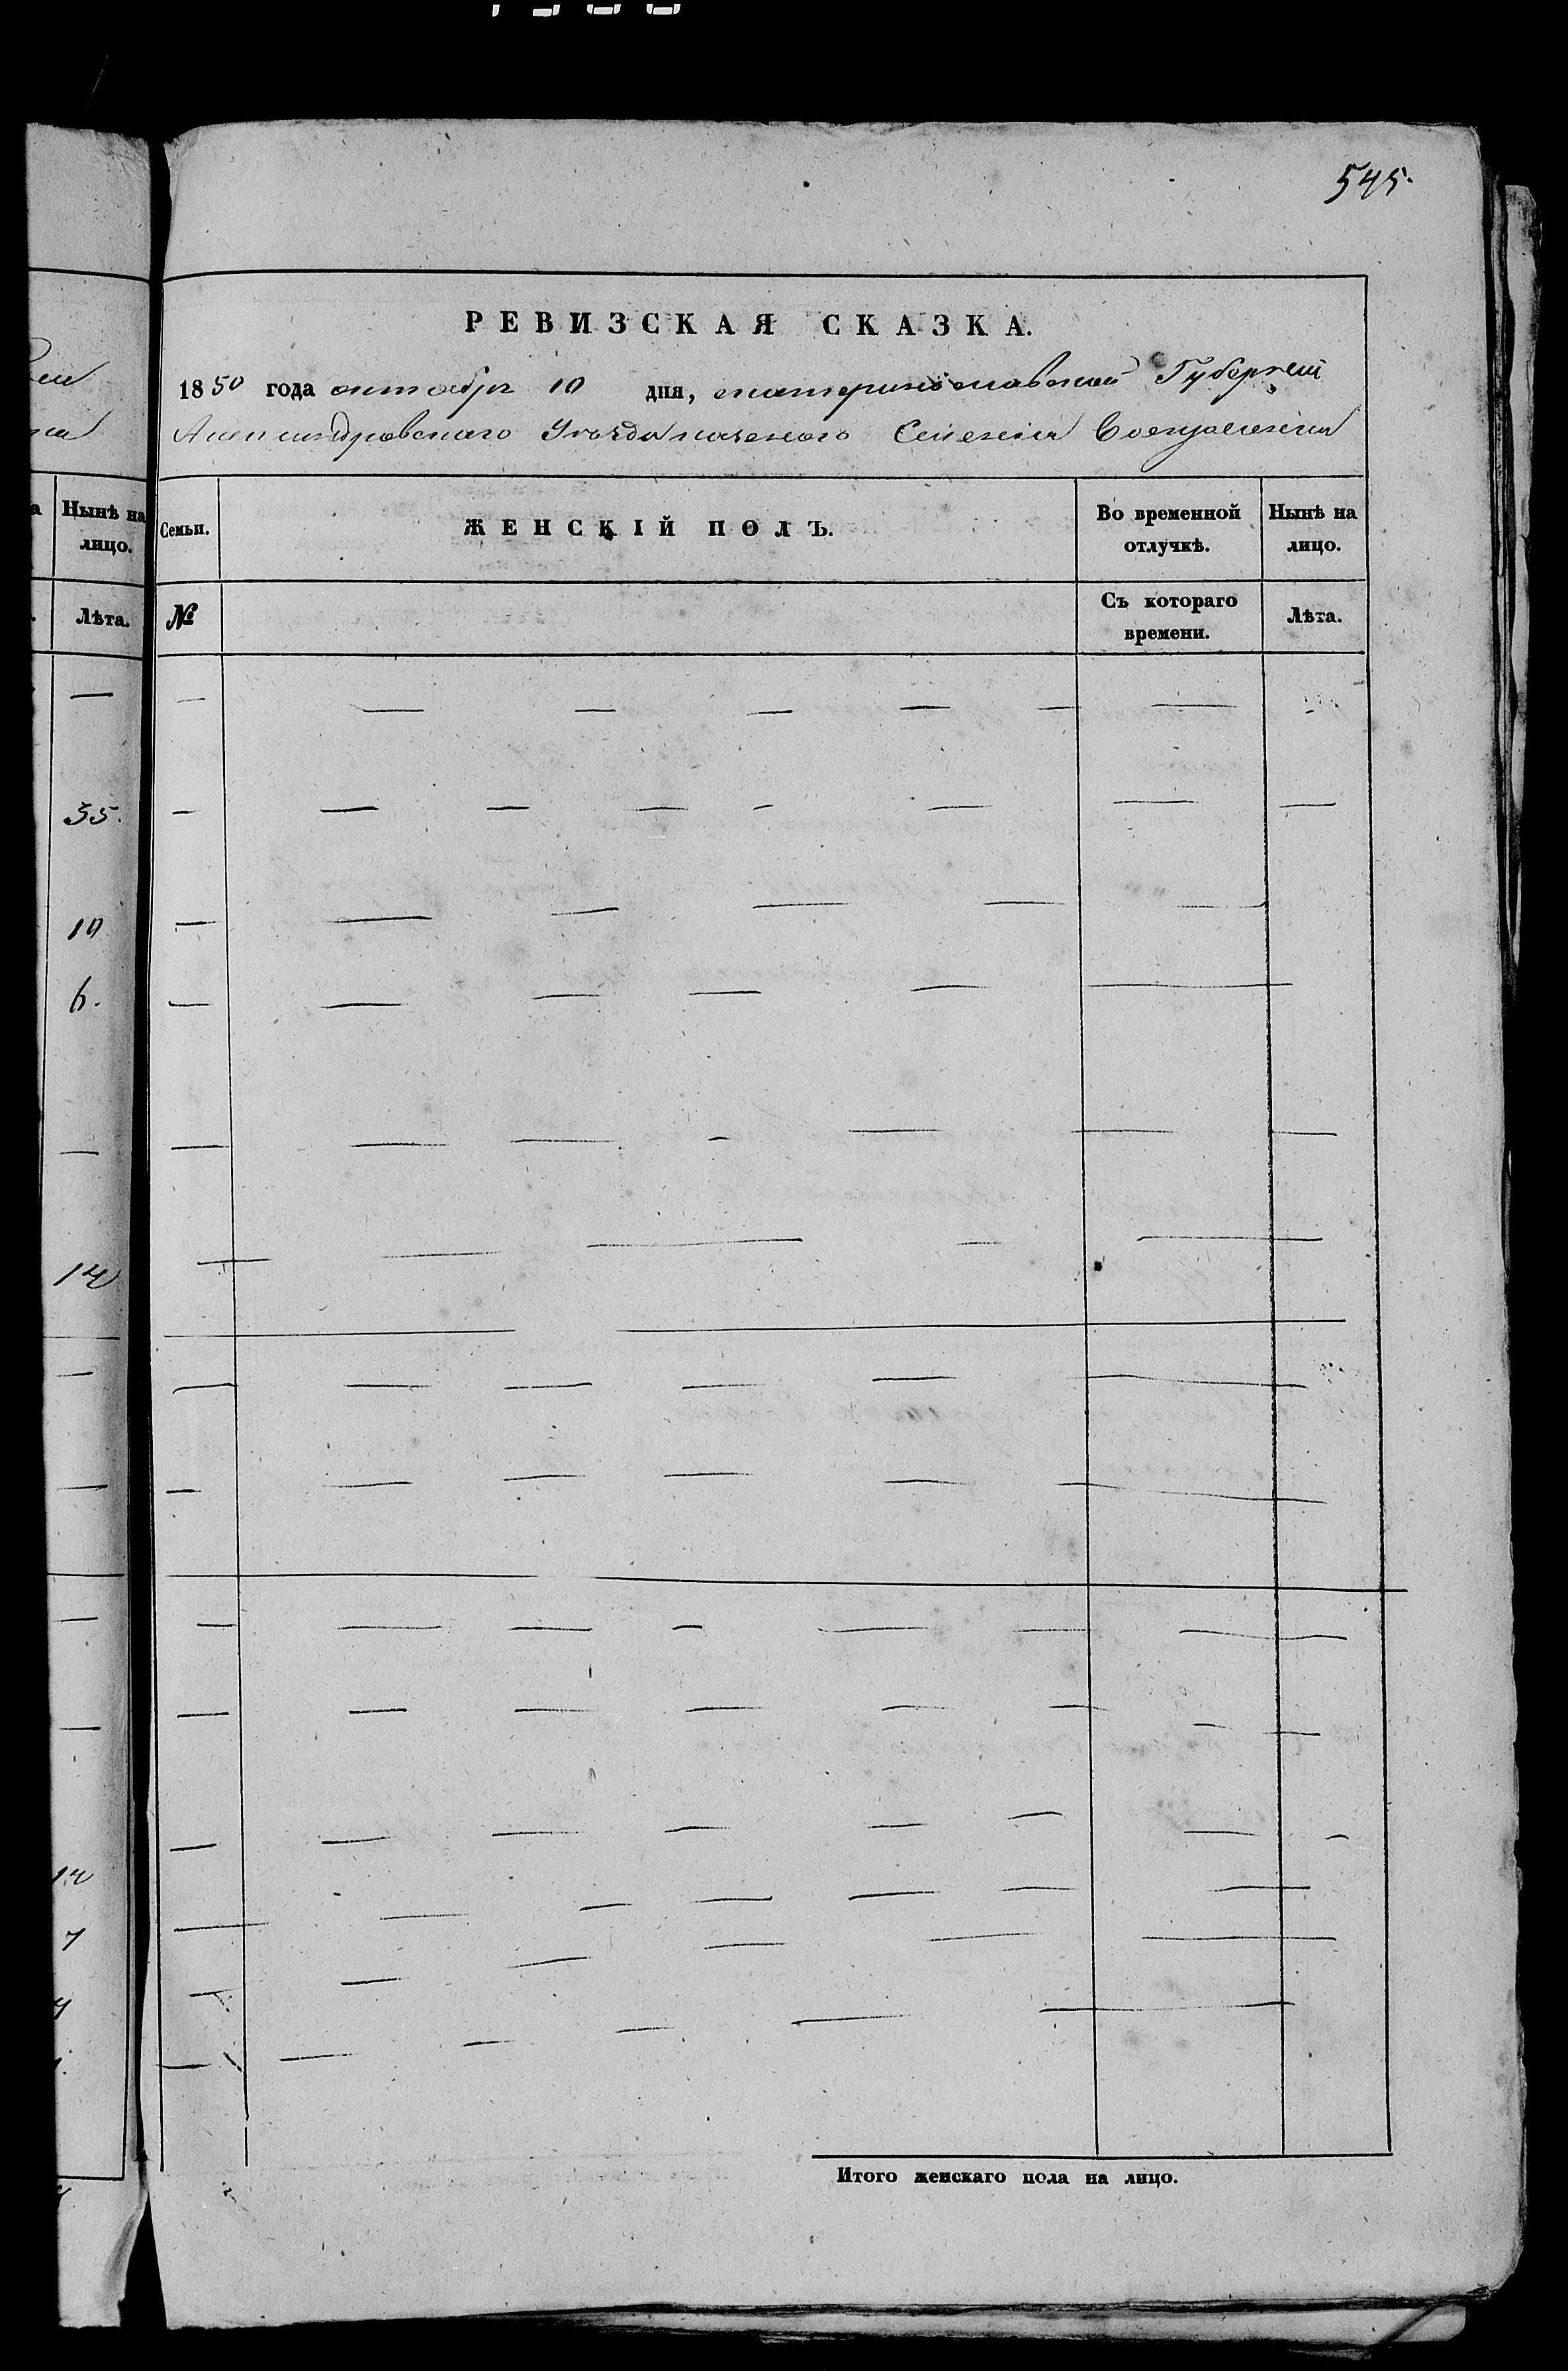 545.
РЕВИЗСКАЯ СКАЗКА.
1850 года октября 10 дня, екатеринославской Губернии
Александровского Уезда казенного Селения
Нынѣ на лицо.
Семьи.
ЖЕНСКІЙ ПОЛЪ.
Во временной отлучкѣ.
Нынѣ на лицо.
Лѣта.
№
Съ котораго времени.
Лѣта.
35.
10
6.
14
14
7
Итого женскаго пола на лицо.